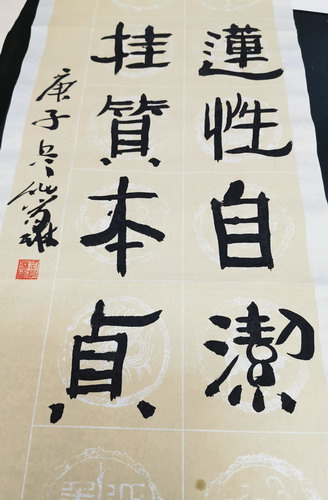 蓮性自潔
桂質本貞
庚子